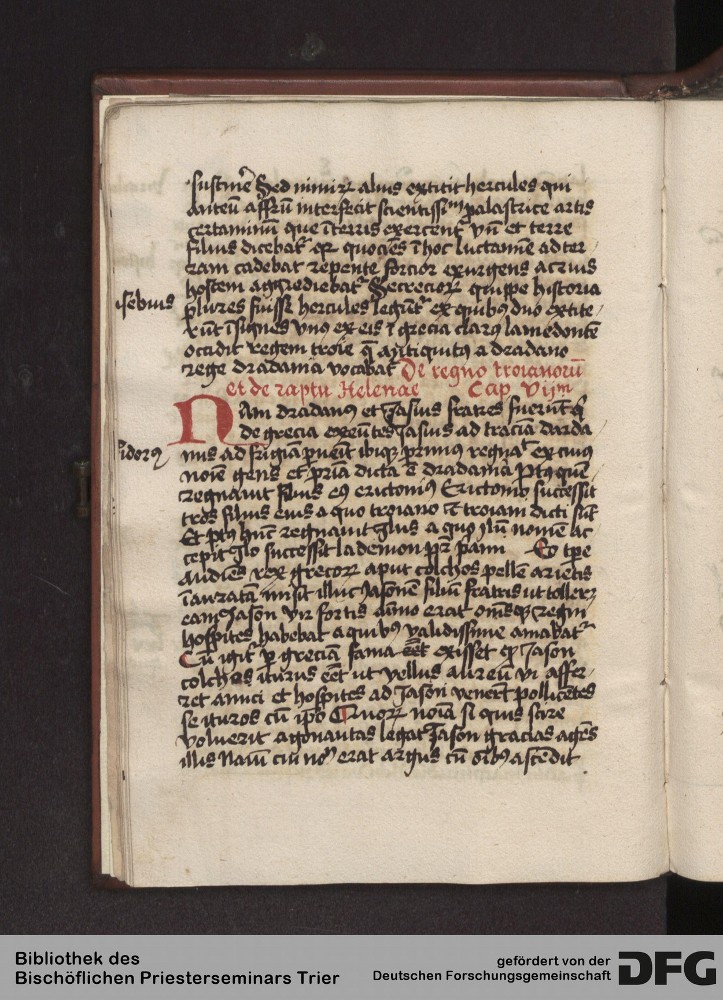 sustinẽ Sed nimirꝝ alius extitit hercules qui
Anteũ affrũ interfecit scientissiᵐ palastrice artis
certaminũ que ĩ terris exercentʳ vnᷓ et terre
filius dicebatʳ eꝝ quociẽs ĩ hoc luctamine ad ter
ram cadebat repente forcior exurgens acrius
hostem aggrediebatʳ Secrecioꝝ quippe historia
isebius
plures fuisse hercules legũtʳ ex quibꝰ duo extite
rũt ĩsignes vnus ex eis ĩ grecia clarꝰ lamedontẽ
occidit regem troie q̃ antiquitꝰ a dradano
rege dradania vocabatʳ De regno troianorũ
et de raptu Helenae Cap vijᵐ
NAm dradanꝰ et Jasius fratres fuerũt q̃
de grecia exeũtes Jasius ad traciã darda
sidorꝰ
nus ad frigiã puẽit ibiqꝫ primus regnaᵗ ex cuiꝰ
noiẽ gens et pria dicta ẽ dradania Ptꝰ quẽ
regnauit filius eꝰ erictoniꝰ Erictonio successit
tros filius eius a quo troiano et troiam dicti sũt
Et ptꝰ hũc regnauit ylus a quo ylũ nomẽ ac
cepit ylo successit lademon pr̃ pami Eo tpẽ
audiẽs rex grecoꝝ aput colchos pellẽ arietis
ĩauratã misit illuc Jasonẽ filiũ fratris ut tolleret
eam Jason vir fortis aĩmo erat om̃sqꝫ regni
hospites habebat a quibꝰ validissime amabatʳ
Cũ igitʳ p greciã fama eẽt exisset qꝫ Jason
colchos iturus eẽt ut vellus aureũ vi affer
ret amici et hospites ad Jasonẽ venerũt pollicẽtes
se ituros cũ ip̃o Quoꝝ noia si quis scire
voluerit agonautas legat Jason gracias agẽs
illis Nauĩ cui noᵐ erat argus cũ oĩbꝰ ascẽdit
Bibliothek des
Bischöflichen Priesterseminars Trier
gefördert von der
Deutschen Forschungsgemeinschaft
DFG